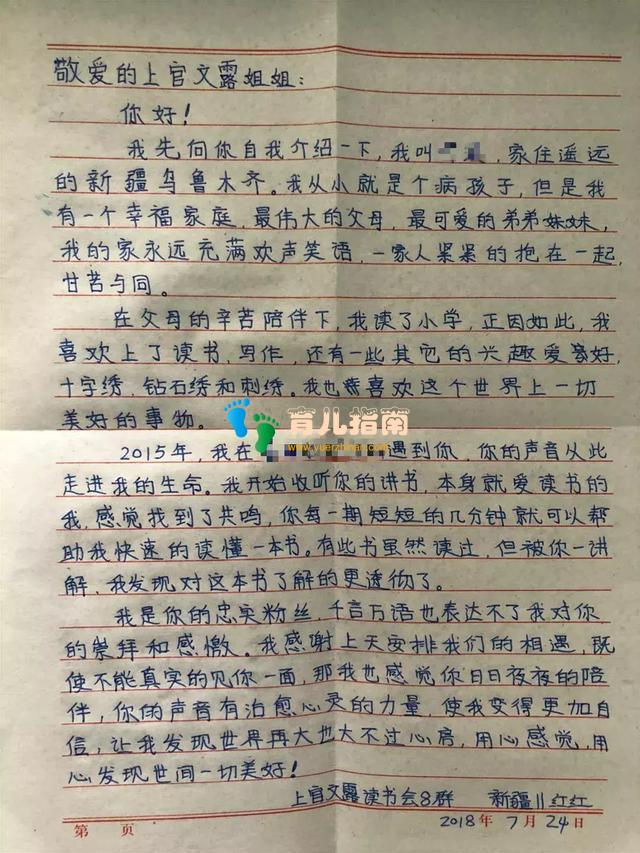 敬爱的上官文露姐姐：
你好！
我先向你自我介绍一下，我叫，家住遥远
的新疆乌鲁木齐。我从小就是个病孩子，但是我
有一个幸福家庭，最伟大的父母，最可爱的弟弟妹妹，
我的家永远充满欢声笑语，一家人紧紧的抱在一起，
甘苦与同。
在父母的辛苦陪伴下，我读了小学，正因如此，我
喜欢上了读书，写作，还有一些其它的兴趣爱好，
十字绣，钻石绣和刺绣。我也喜欢这个世界上一切
美好的事物。
育儿指南
www.yuerzhinan.com
2015年，我在遇到你，你的声音从此
走进我的生命。我开始收听你的讲书，本身就爱读书的
我，感觉找到了共鸣，你每一期短短的几分钟就可以帮
助我快速的读懂一本书。有些书虽然读过，但被你一讲
解，我发现对这本书了解的更透彻了。
我是你的忠实粉丝，千言万语也表达不了我对你
的崇拜和感憿。我感谢上天安排我们的相遇，既
使不能真实的见你一面，那我也感觉你日日夜夜的陪
伴，你的声音有治愈心灵的力量，使我变得更加自
信，让我发现世界再大也大不过心房，用心感觉，用
心发现世间一切美好！
上官文露读书会8群 新疆II红红
第 页 2018年7月24日